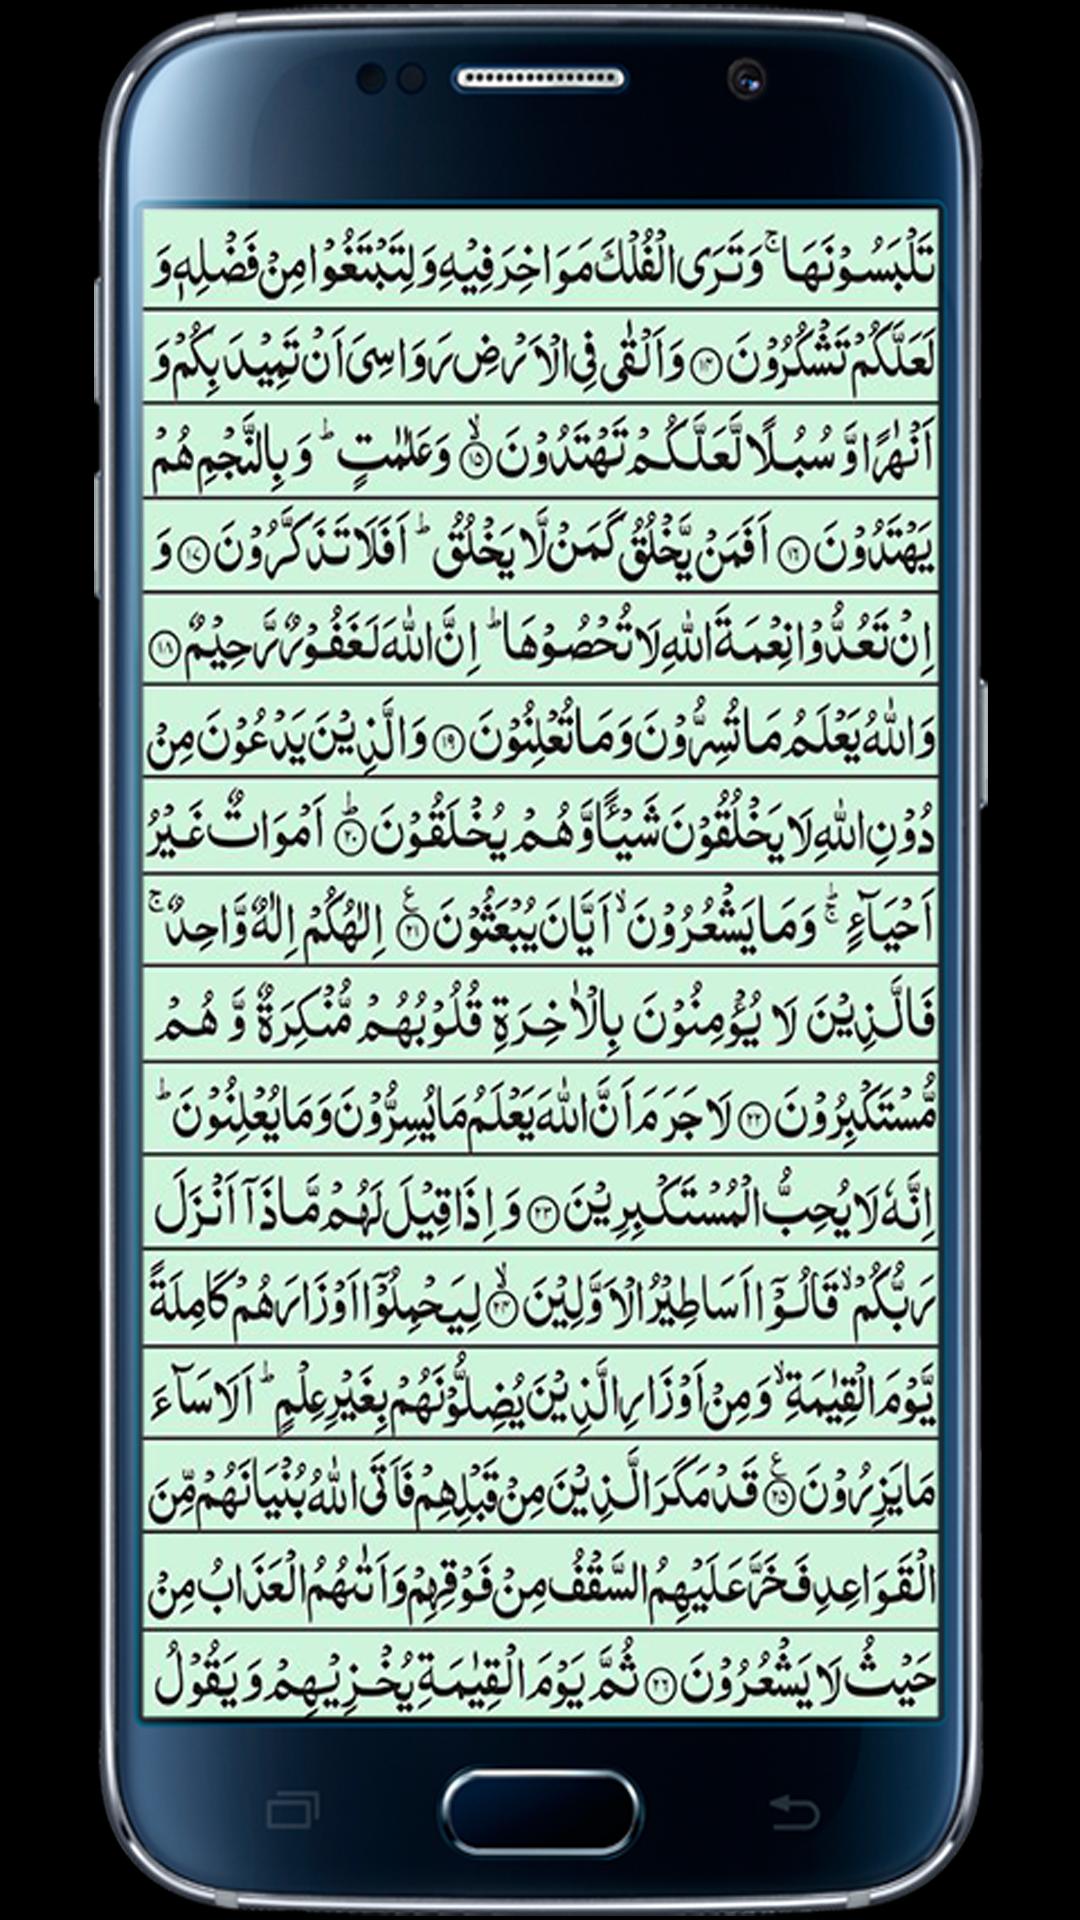 تَلْبَسُوْنَهَا ۚ وَتَرَى الْفُلْكَ مَوَاخِرَ فِيْهِ وَلِتَبْتَغُوْا مِنْ فَضْلِهٖ وَ
لَعَلَّكُمْ تَشْكُرُوْنَ ﴿۱۴﴾ وَاَلْقٰى فِى الْاَرْضِ رَوَاسِىَ اَنْ تَمِيْدَ بِكُمْ وَ
اَنْهٰرًا وَّ سُبُلًا لَّعَلَّكُمْ تَهْتَدُوْنَ ﴿۱۵﴾ۙ وَعَلٰمٰتٍ ؕ وَ بِالنَّجْمِ هُمْ
يَهْتَدُوْنَ ﴿۱۶﴾ اَفَمَنْ يَّخْلُقُ كَمَنْ لَّا يَخْلُقُ ؕ اَفَلَا تَذَكَّرُوْنَ ﴿۱۷﴾ وَ
اِنْ تَعُدُّوْا نِعْمَةَ اللّٰهِ لَا تُحْصُوْهَا ؕ اِنَّ اللّٰهَ لَغَفُوْرٌ رَّحِيْمٌ ﴿۱۸﴾
وَاللّٰهُ يَعْلَمُ مَا تُسِرُّوْنَ وَمَا تُعْلِنُوْنَ ﴿۱۹﴾ وَالَّذِيْنَ يَدْعُوْنَ مِنْ
دُوْنِ اللّٰهِ لَا يَخْلُقُوْنَ شَيْـًٔا وَّهُمْ يُخْلَقُوْنَ ﴿۲۰﴾ؕ اَمْوَاتٌ غَيْرُ
اَحْيَآءٍ ۚ وَمَا يَشْعُرُوْنَ ۙ اَيَّانَ يُبْعَثُوْنَ ﴿۲۱﴾ع اِلٰهُكُمْ اِلٰهٌ وَّاحِدٌ ۚ
فَالَّذِيْنَ لَا يُؤْمِنُوْنَ بِالْاٰخِرَةِ قُلُوْبُهُمْ مُّنْكِرَةٌ وَّ هُمْ
مُّسْتَكْبِرُوْنَ ﴿۲۲﴾ لَا جَرَمَ اَنَّ اللّٰهَ يَعْلَمُ مَا يُسِرُّوْنَ وَمَا يُعْلِنُوْنَ ؕ
اِنَّهٗ لَا يُحِبُّ الْمُسْتَكْبِرِيْنَ ﴿۲۳﴾ وَ اِذَا قِيْلَ لَهُمْ مَّاذَاۤ اَنْزَلَ
رَبُّكُمْ ۙ قَالُوْۤا اَسَاطِيْرُ الْاَوَّلِيْنَ ﴿۲۴﴾ۙ لِيَحْمِلُوْۤا اَوْزَارَهُمْ كَامِلَةً
يَّوْمَ الْقِيٰمَةِ ۙ وَمِنْ اَوْزَارِ الَّذِيْنَ يُضِلُّوْنَهُمْ بِغَيْرِ عِلْمٍ ؕ اَلَا سَآءَ
مَا يَزِرُوْنَ ﴿۲۵﴾ع قَدْ مَكَرَ الَّذِيْنَ مِنْ قَبْلِهِمْ فَاَتَى اللّٰهُ بُنْيَانَهُمْ مِّنَ
الْقَوَاعِدِ فَخَرَّ عَلَيْهِمُ السَّقْفُ مِنْ فَوْقِهِمْ وَاَتٰىهُمُ الْعَذَابُ مِنْ
حَيْثُ لَا يَشْعُرُوْنَ ﴿۲۶﴾ ثُمَّ يَوْمَ الْقِيٰمَةِ يُخْزِيْهِمْ وَ يَقُوْلُ